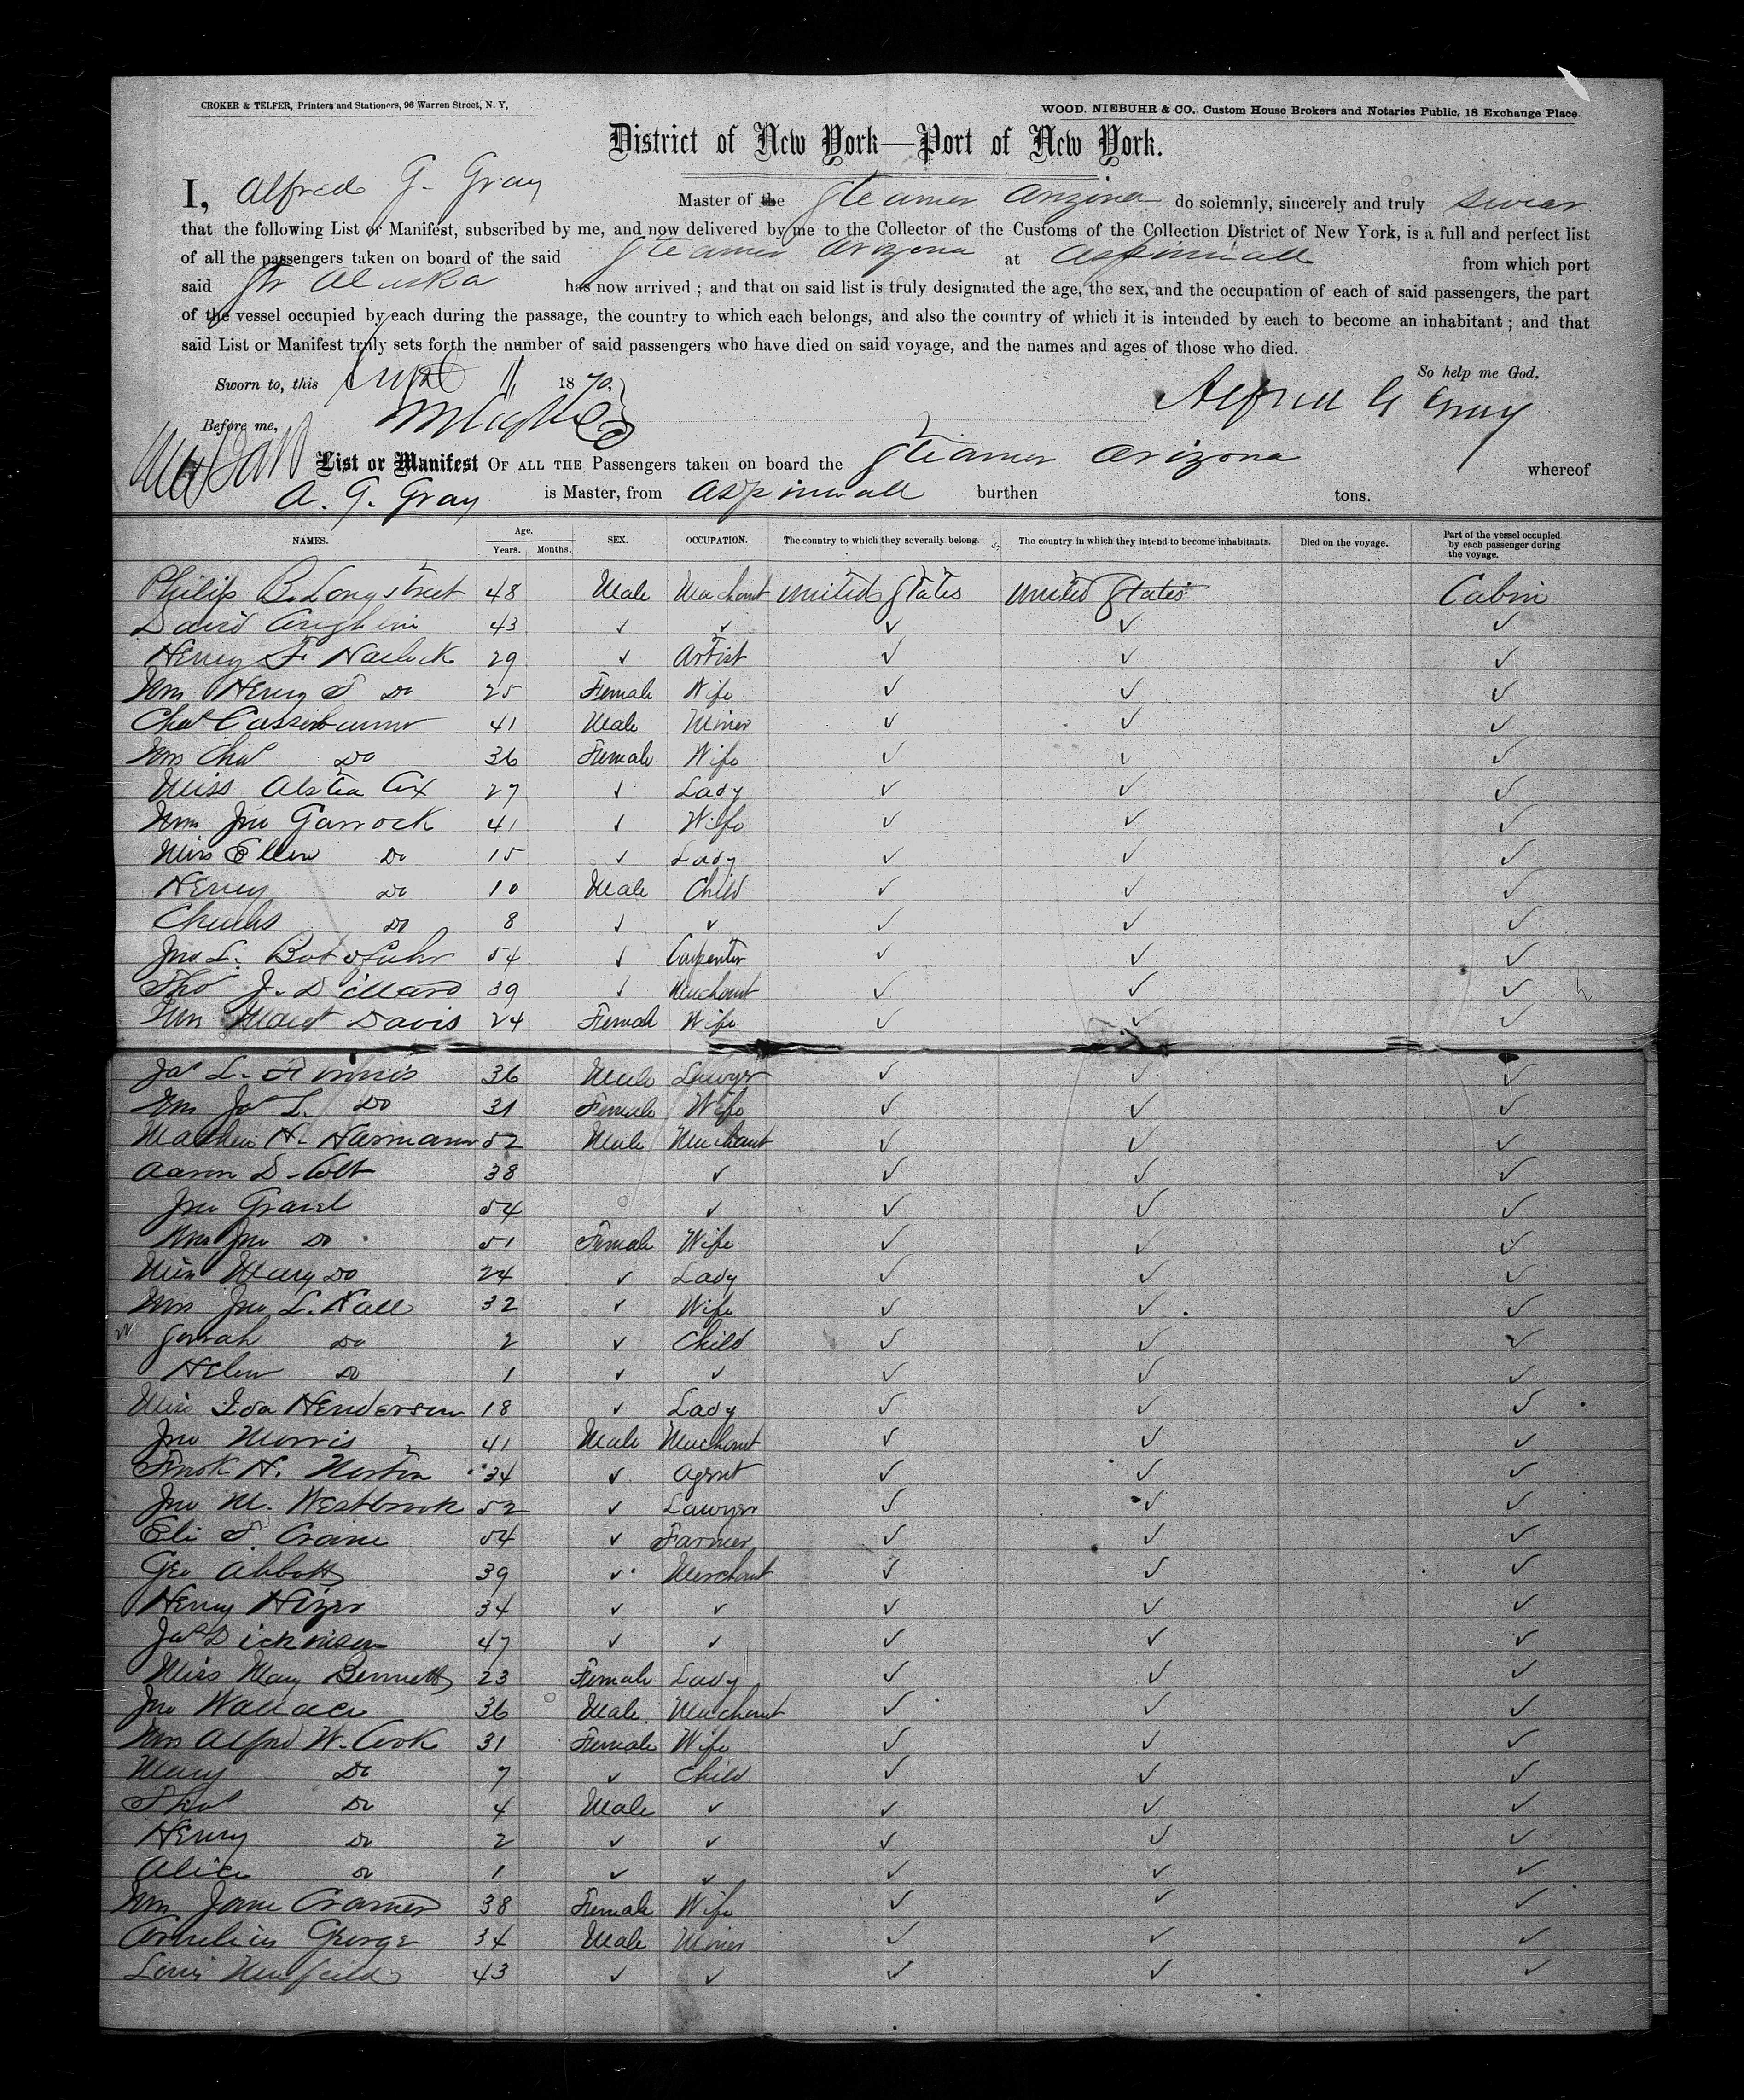 CROKER & TELFER, Printers and Stationers, 96 Warren Street, N. Y,
WOOD, NIEBUHR & CO., Custom House Brokers and Notaries Public, 18 Exchange Place.
District of New York—Port of New York.
I, Alfred G. Gray Master of the Steamer Arizona do solemnly, sincerely and truly swear
that the following List or Manifest, subscribed by me, and now delivered by me to the Collector of the Customs of the Collection District of New York, is a full and perfect list
of all the passengers taken on board of the said Steamer Arizona at Aspinwall from which port
said Str Alaska has now arrived ; and that on said list is truly designated the age, the sex, and the occupation of each of said passengers, the part
of the vessel occupied by each during the passage, the country to which each belongs, and also the country of which it is intended by each to become an inhabitant ; and that
said List or Manifest truly sets forth the number of said passengers who have died on said voyage, and the names and ages of those who died.
Sworn to, this 11 1870. So help me God.
Alfred G Gray
Before me,
List or Manifest OF ALL THE Passengers taken on board the Steamer Arizona whereof
A. G. Gray is Master, from Aspinwall burthen tons.
NAMES. Age. Years. Months. SEX. OCCUPATION. The country to which they severally belong. The country in which they intend to become inhabitants. Died on the voyage. Part of the vessel occupied by each passenger during the voyage.
Philip B. Longstreet 48 Male Merchant United States United States Cabin
David 43 ✓ ✓ ✓ ✓ ✓
Henry F. 29 ✓ Artist ✓ ✓ ✓
Mrs Henry F Do 25 Female Wife ✓ ✓ ✓
Chas 41 Male Miner ✓ ✓ ✓
Mrs Chas Do 36 Female Wife ✓ ✓ ✓
Miss Cox 27 ✓ Lady ✓ ✓ ✓
Mrs Jno Garrock 41 ✓ Wife ✓ ✓ ✓
Miss Ellen Do 15 ✓ Lady ✓ ✓ ✓
Henry Do 10 Male Child ✓ ✓ ✓
Charles Do 8 ✓ ✓ ✓ ✓ ✓
Jno L. 54 ✓ Carpenter ✓ ✓ ✓
Thos J. Dillard 39 ✓ Merchant ✓ ✓ ✓
Mrs Davis 24 Female Wife ✓ ✓ ✓
Jas L. 36 Male Lawyer ✓ ✓ ✓
Mrs Jas L. Do 31 Female Wife ✓ ✓ ✓
Mathew H. Harmann 52 Male Merchant ✓ ✓ ✓
Aaron D. Colt 38 ✓ ✓ ✓ ✓
Jno Gravel 54 ✓ ✓ ✓ ✓
Mrs Jno Do 51 Female Wife ✓ ✓ ✓
Miss Mary Do 24 ✓ Lady ✓ ✓ ✓
Mrs Jno L. Hall 32 ✓ Wife ✓ ✓ ✓
Do 2 ✓ Child ✓ ✓ ✓
Helen Do 1 ✓ ✓ ✓ ✓ ✓
Miss Ida Henderson 18 ✓ Lady ✓ ✓ ✓
Jno Morris 41 Male Merchant ✓ ✓ ✓
H. Norton 34 ✓ Agent ✓ ✓ ✓
Jno M. Westbrook 52 ✓ Lawyer ✓ ✓ ✓
Eli T. Crane 54 ✓ Farmer ✓ ✓ ✓
Geo Abbott 39 ✓ Merchant ✓ ✓ ✓
Henry 34 ✓ ✓ ✓ ✓ ✓
Jas Dickinson 47 ✓ ✓ ✓ ✓ ✓
Miss Mary Bennett 23 Female Lady ✓ ✓ ✓
Jno Wallace 36 Male Merchant ✓ ✓ ✓
Mrs Alfred W. Cook 31 Female Wife ✓ ✓ ✓
Mary Do 7 ✓ Child ✓ ✓ ✓
Thos Do 4 Male ✓ ✓ ✓ ✓
Henry Do 2 ✓ ✓ ✓ ✓ ✓
Alice Do 1 ✓ ✓ ✓ ✓ ✓
Mrs Jane Cramer 38 Female Wife ✓ ✓ ✓
Cornelius George 34 Male Miner ✓ ✓ ✓
Louis Newfield 43 ✓ ✓ ✓ ✓ ✓